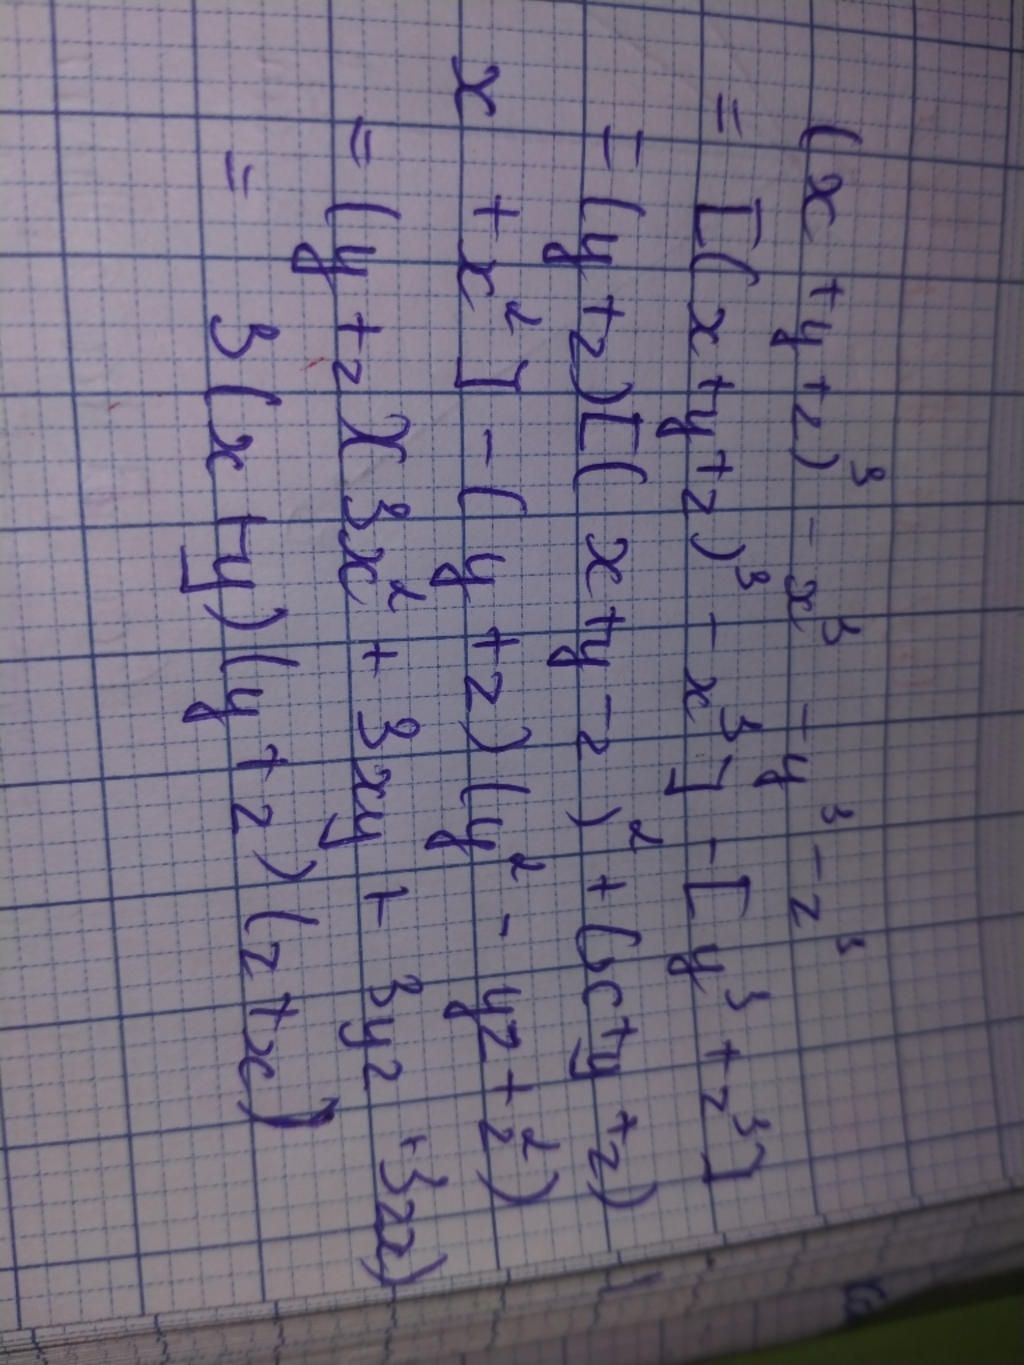 (x + y + z)³ - x³ - y³ - z³
= [(x + y + z)³ - x³] - [y³ + z³]
= (y + z)[(x + y - z)² + (x + y + z)
x + x²] - (y + z)(y² - yz + z²)
= (y + z)(3x² + 3xy + 3yz + 3zx)
= 3(x + y)(y + z)(z + x)